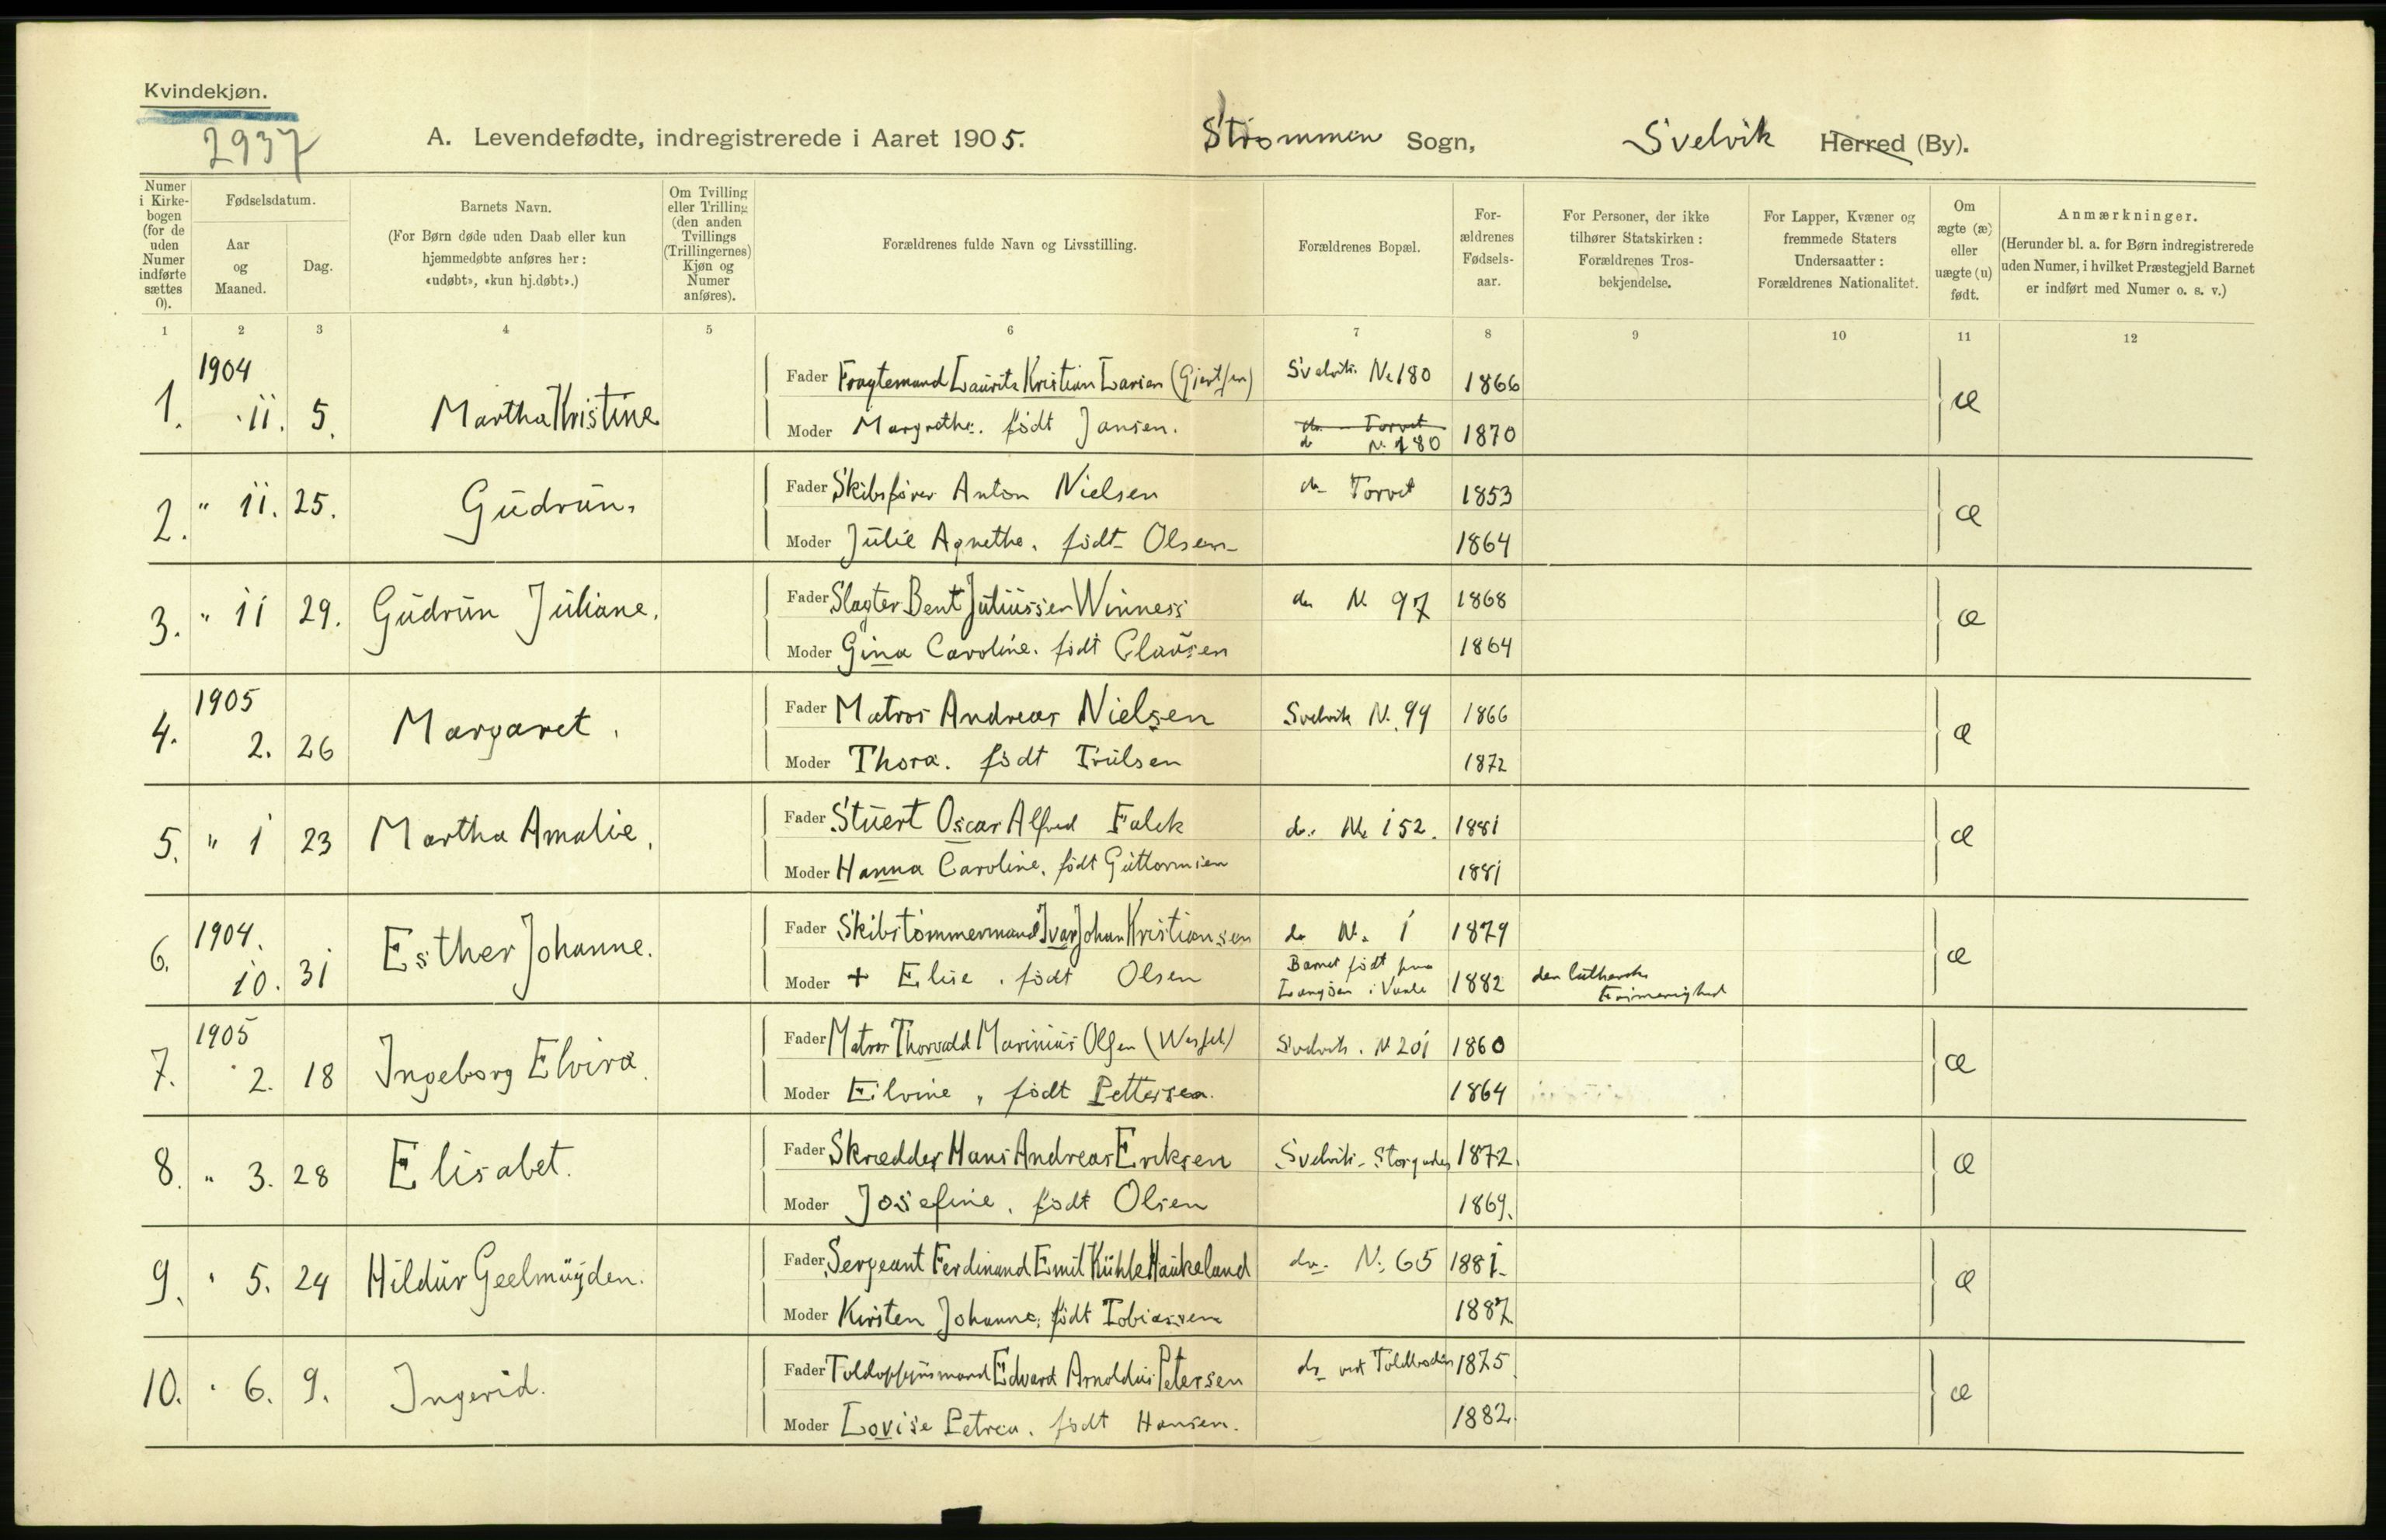 Kvindekjøn.
2937
A. Levendefødte, indregistrerede i Aaret 1905. Strømmen Sogn, Svelvik Herred (By).
Numer i Kirke-bogen (for de uden Numer indførte sættes 0).
Fødselsdatum.
Aar og Maaned.
Dag.
Barnets Navn.
(For Børn døde uden Daab eller kun hjemmedøbte anføres her: «udøbt», «kun hj.døbt».)
Om Tvilling eller Trilling (den anden Tvillings (Trillingernes) Kjøn og Numer anføres).
Forældrenes fulde Navn og Livsstilling.
Forældrenes Bopæl.
For-ældrenes Fødsels-aar.
For Personer, der ikke tilhører Statskirken: Forældrenes Tros-bekjendelse.
For Lapper, Kvæner og fremmede Staters Undersaatter: Forældrenes Nationalitet.
Om ægte (æ) eller uægte (u) født.
Anmærkninger.
(Herunder bl. a. for Børn indregistrerede uden Numer, i hvilket Præstegjeld Barnet er indført med Numer o. s. v.)
1 2 3 4 5 6 7 8 9 10 11 12
1. 1904 11. 5. Martha Kristine Fader Fragtemand Laurits Kristian Larsen (Gjertsen) Svelvik N. 180 1866 æ
Moder Margrethe. født Jansen. do Torvet
do N. 180 1870
2. " 11. 25. Gudrun. Fader Skibsfører Anton Nielsen do Torvet 1853 æ
Moder Julie Agnethe. født Olsen 1864
3. " 11 29. Gudrun Juliane. Fader Slagter Bent Juliussen Winness do N 97 1868 æ
Moder Gina Caroline. født Clausen 1864
4. 1905 2. 26 Margaret. Fader Matros Andreas Nielsen Svelvik N. 99 1866 æ
Moder Thora. født Trulsen 1872
5. " 1 23 Martha Amalie. Fader Stuert Oscar Alfred Falck do. N. 152. 1881 æ
Moder Hanna Caroline. født Guttormsen 1881
6. 1904. 10. 31 Esther Johanne. Fader Skibstømmermand Ivar Johan Kristiansen do N. 1 1879 æ
Moder + Elise. født Olsen Barnet født paa
i Vaale 1882 den lutherske
Frimenighed
7. 1905 2. 18 Ingeborg Elvira. Fader Matros Thorvald Marinius Olsen (Wessel) Svelvik. N 201 1860 æ
Moder Elvine, født Pettersen. 1864
8. " 3. 28 Elisabet. Fader Skrædder Hans Andreas Eriksen Svelvik - Storgaden 1872. æ
Moder Josefine. født Olsen 1869.
9. " 5. 24 Hildur Geelmuyden. Fader Sergeant Ferdinand Emil Kühle Haukeland do. N. 65 1881. æ
Moder Kirsten Johanne. født Tobiassen 1887
10. " 6. 9. Ingerid. Fader Toldopsynsmand Edvard Arnoldus Petersen do ved Toldboden 1875. æ
Moder Lovise Petrea. født Hansen. 1882.